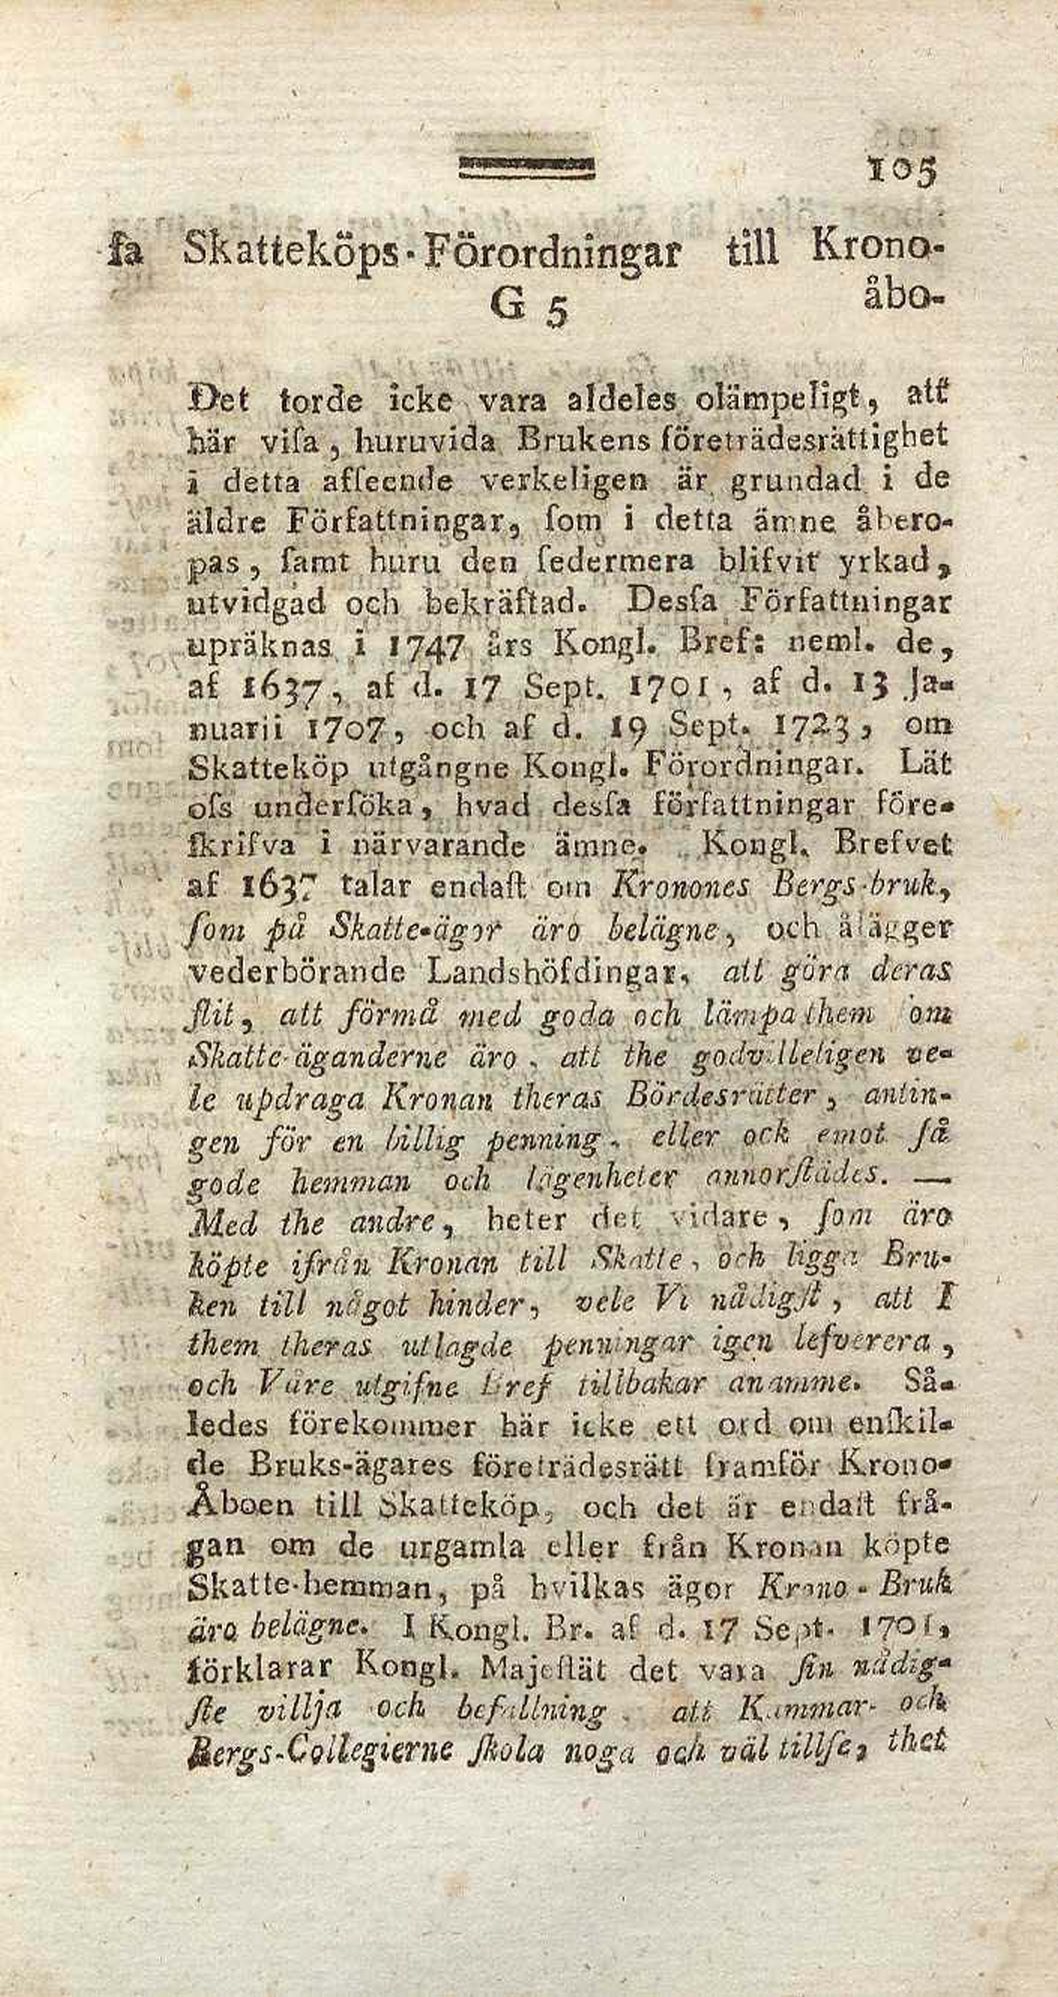 105
ſa Skatteköps-Förordningar till Krono-
G 5 åbo-
Det torde icke vara aldeles olämpeligt, att
här viſa, huruvida Brukens företrädesrättighet
i detta afſeende verkeligen är grundad i de
äldre Författningar, ſom i detta ämne åbero-
pas, ſamt huru den ſedermera blifvit yrkad,
utvidgad och bekräftad. Desſa Författningar
upräknas i 1747 års Kongl. Bref: neml. de,
af 1637, af d. 17 Sept. 1701, af d. 13 Ja-
nuarii 1707, och af d. 19 Sept. 1723, om
Skatteköp utgångne Kongl. Förordningar. Lät
oſs underſöka, hvad desſa författningar före-
ſkrifva i närvarande ämne. Kongl. Brefvet
af 1637 talar endaſt om Kronones Bergs-bruk,
ſom på Skatte-ägor äro belägne, och ålägger
vederbörande Landshöfdingar, att göra deras
flit, att förmå med goda och lämpa them om
Skatte-äganderne äro, att the godvilleligen ve-
le updraga Kronan theras Bördesrätter, antin-
gen för en billig penning, eller ock emot ſå
gode hemman och lägenheter annorſtädes. —
Med the andre, heter det vidare, ſom äro
köpte ifrån Kronan till Skatte, och ligga Bru-
ken till något hinder, vele Vi nådigſt, att I
them theras utlagde penningar igen lefverera,
och Våre utgifne Bref tillbakar anamme. Så-
ledes förekommer här icke ett ord om enſkil-
de Bruks-ägares företrädesrätt framför Krono-
Åboen till Skatteköp, och det är endaſt frå-
gan om de urgamla eller från Kronan köpte
Skatte-hemman, på hvilkas ägor Krono-Bruk
äro belägne. I Kongl. Br. af d. 17 Sept. 1701,
förklarar Kongl. Majeſtät det vara ſin nådig-
ſte villja och befallning, att Kammar- och
Bergs-Collegierne ſkola noga och väl tillſe, thet